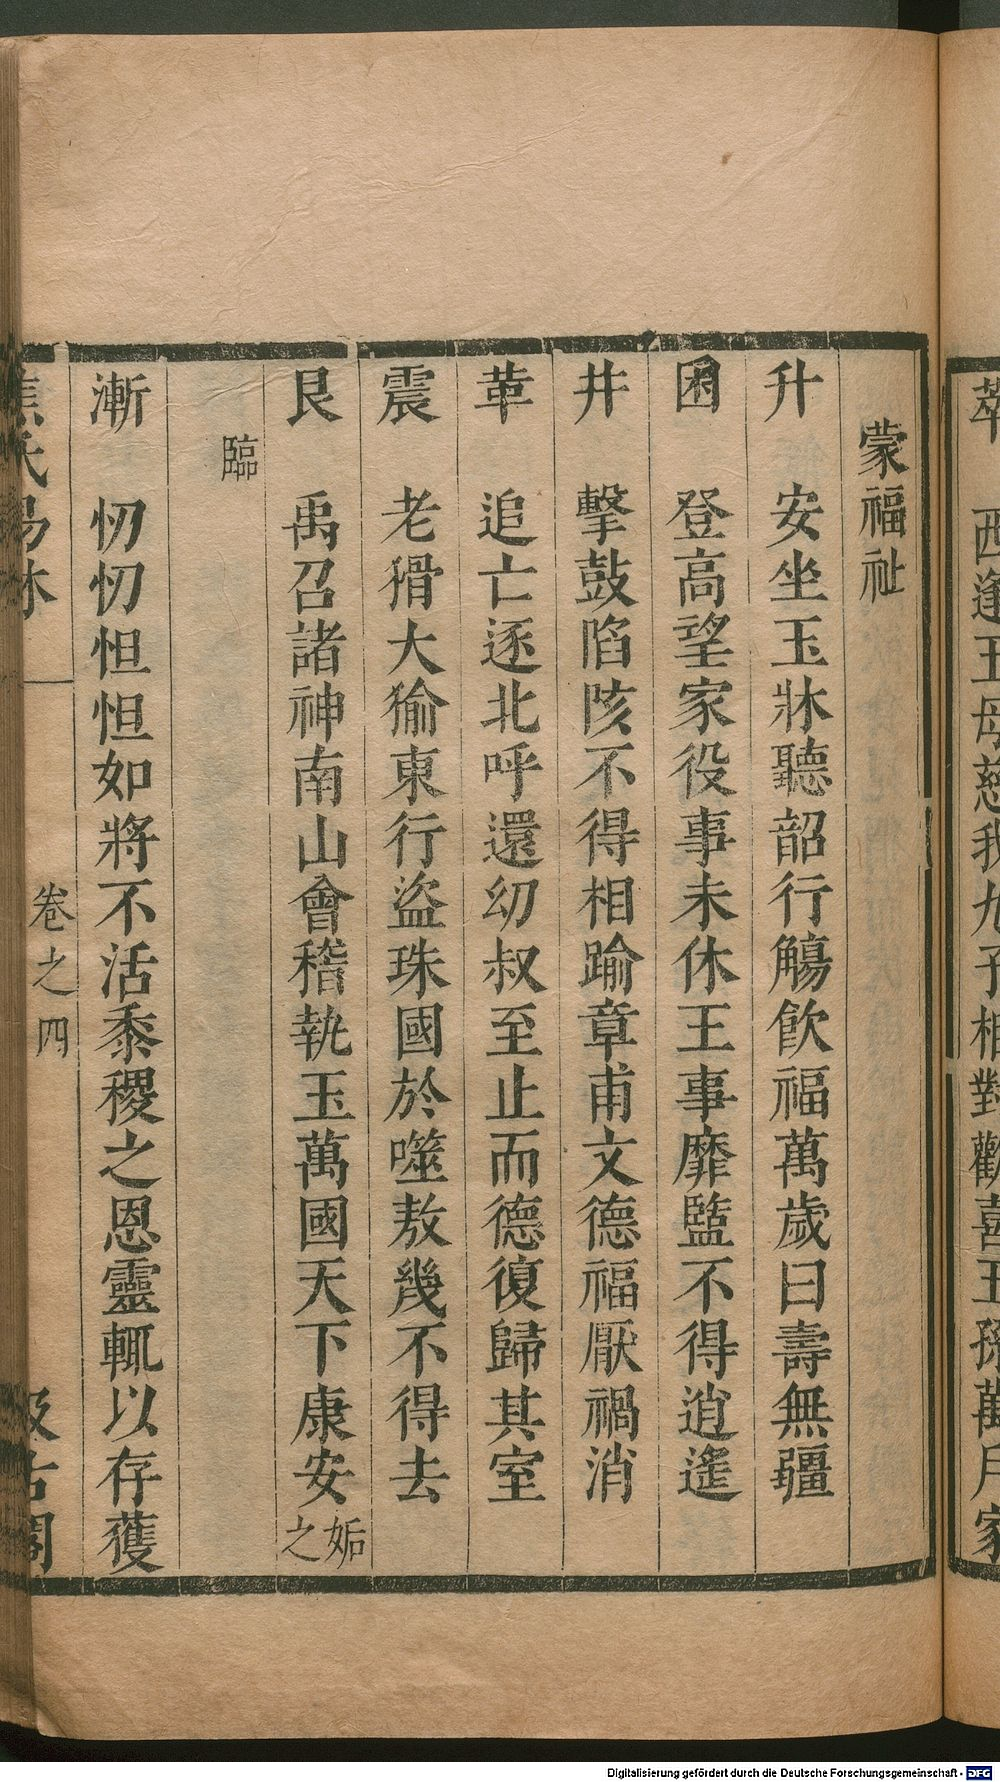 萃　西逢王母慈我九子相對歡喜王孫萬戶家
蒙福祉
升　安坐玉牀聽韶行觴飲福萬歲日壽無疆
困　登高望家役事未休王事靡盬不得逍遙
井　擊鼓陷陔不得相踰章甫文德福厭禍消
革　追亡逐北呼還幼叔至止而德復歸其室
震　老猾大猾東行盜珠國於噬敖幾不得去
艮　禹召諸神南山會稽執玉萬國天下康安姤之
臨
漸　忉忉怛怛如將不活黍稷之恩靈輒以存獲
焦氏易林　卷之四　汲古閣
Digitalisierung gefördert durch die Deutsche Forschungsgemeinschaft - DFG